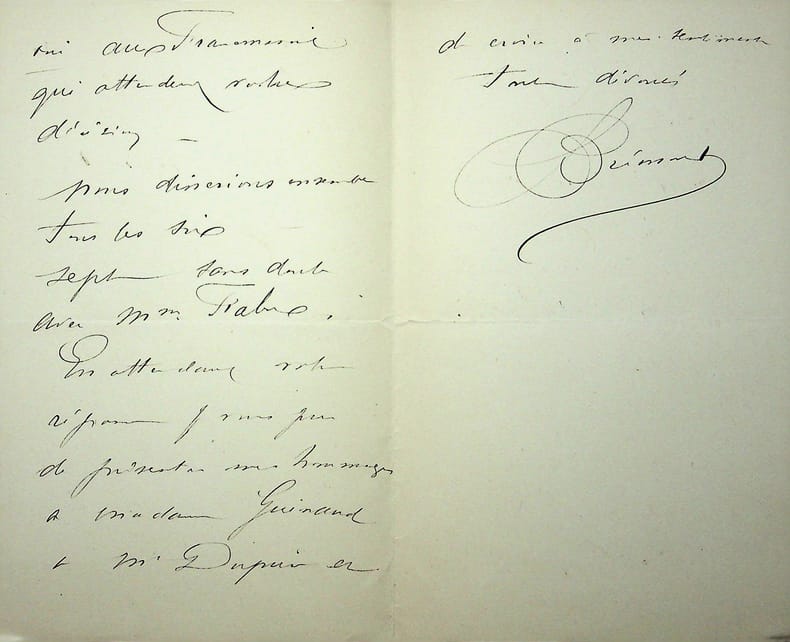 oui aux Francmesnil
qui attendent votre
décision —
nous dinerions ensemble
tous les six
sept sans doute
avec Mme
En attendant votre
réponse je vous prie
de présenter mes hommages
à madame Guinaud
à Mr Dupuis et
de croire à mes sentiments
tout dévoués